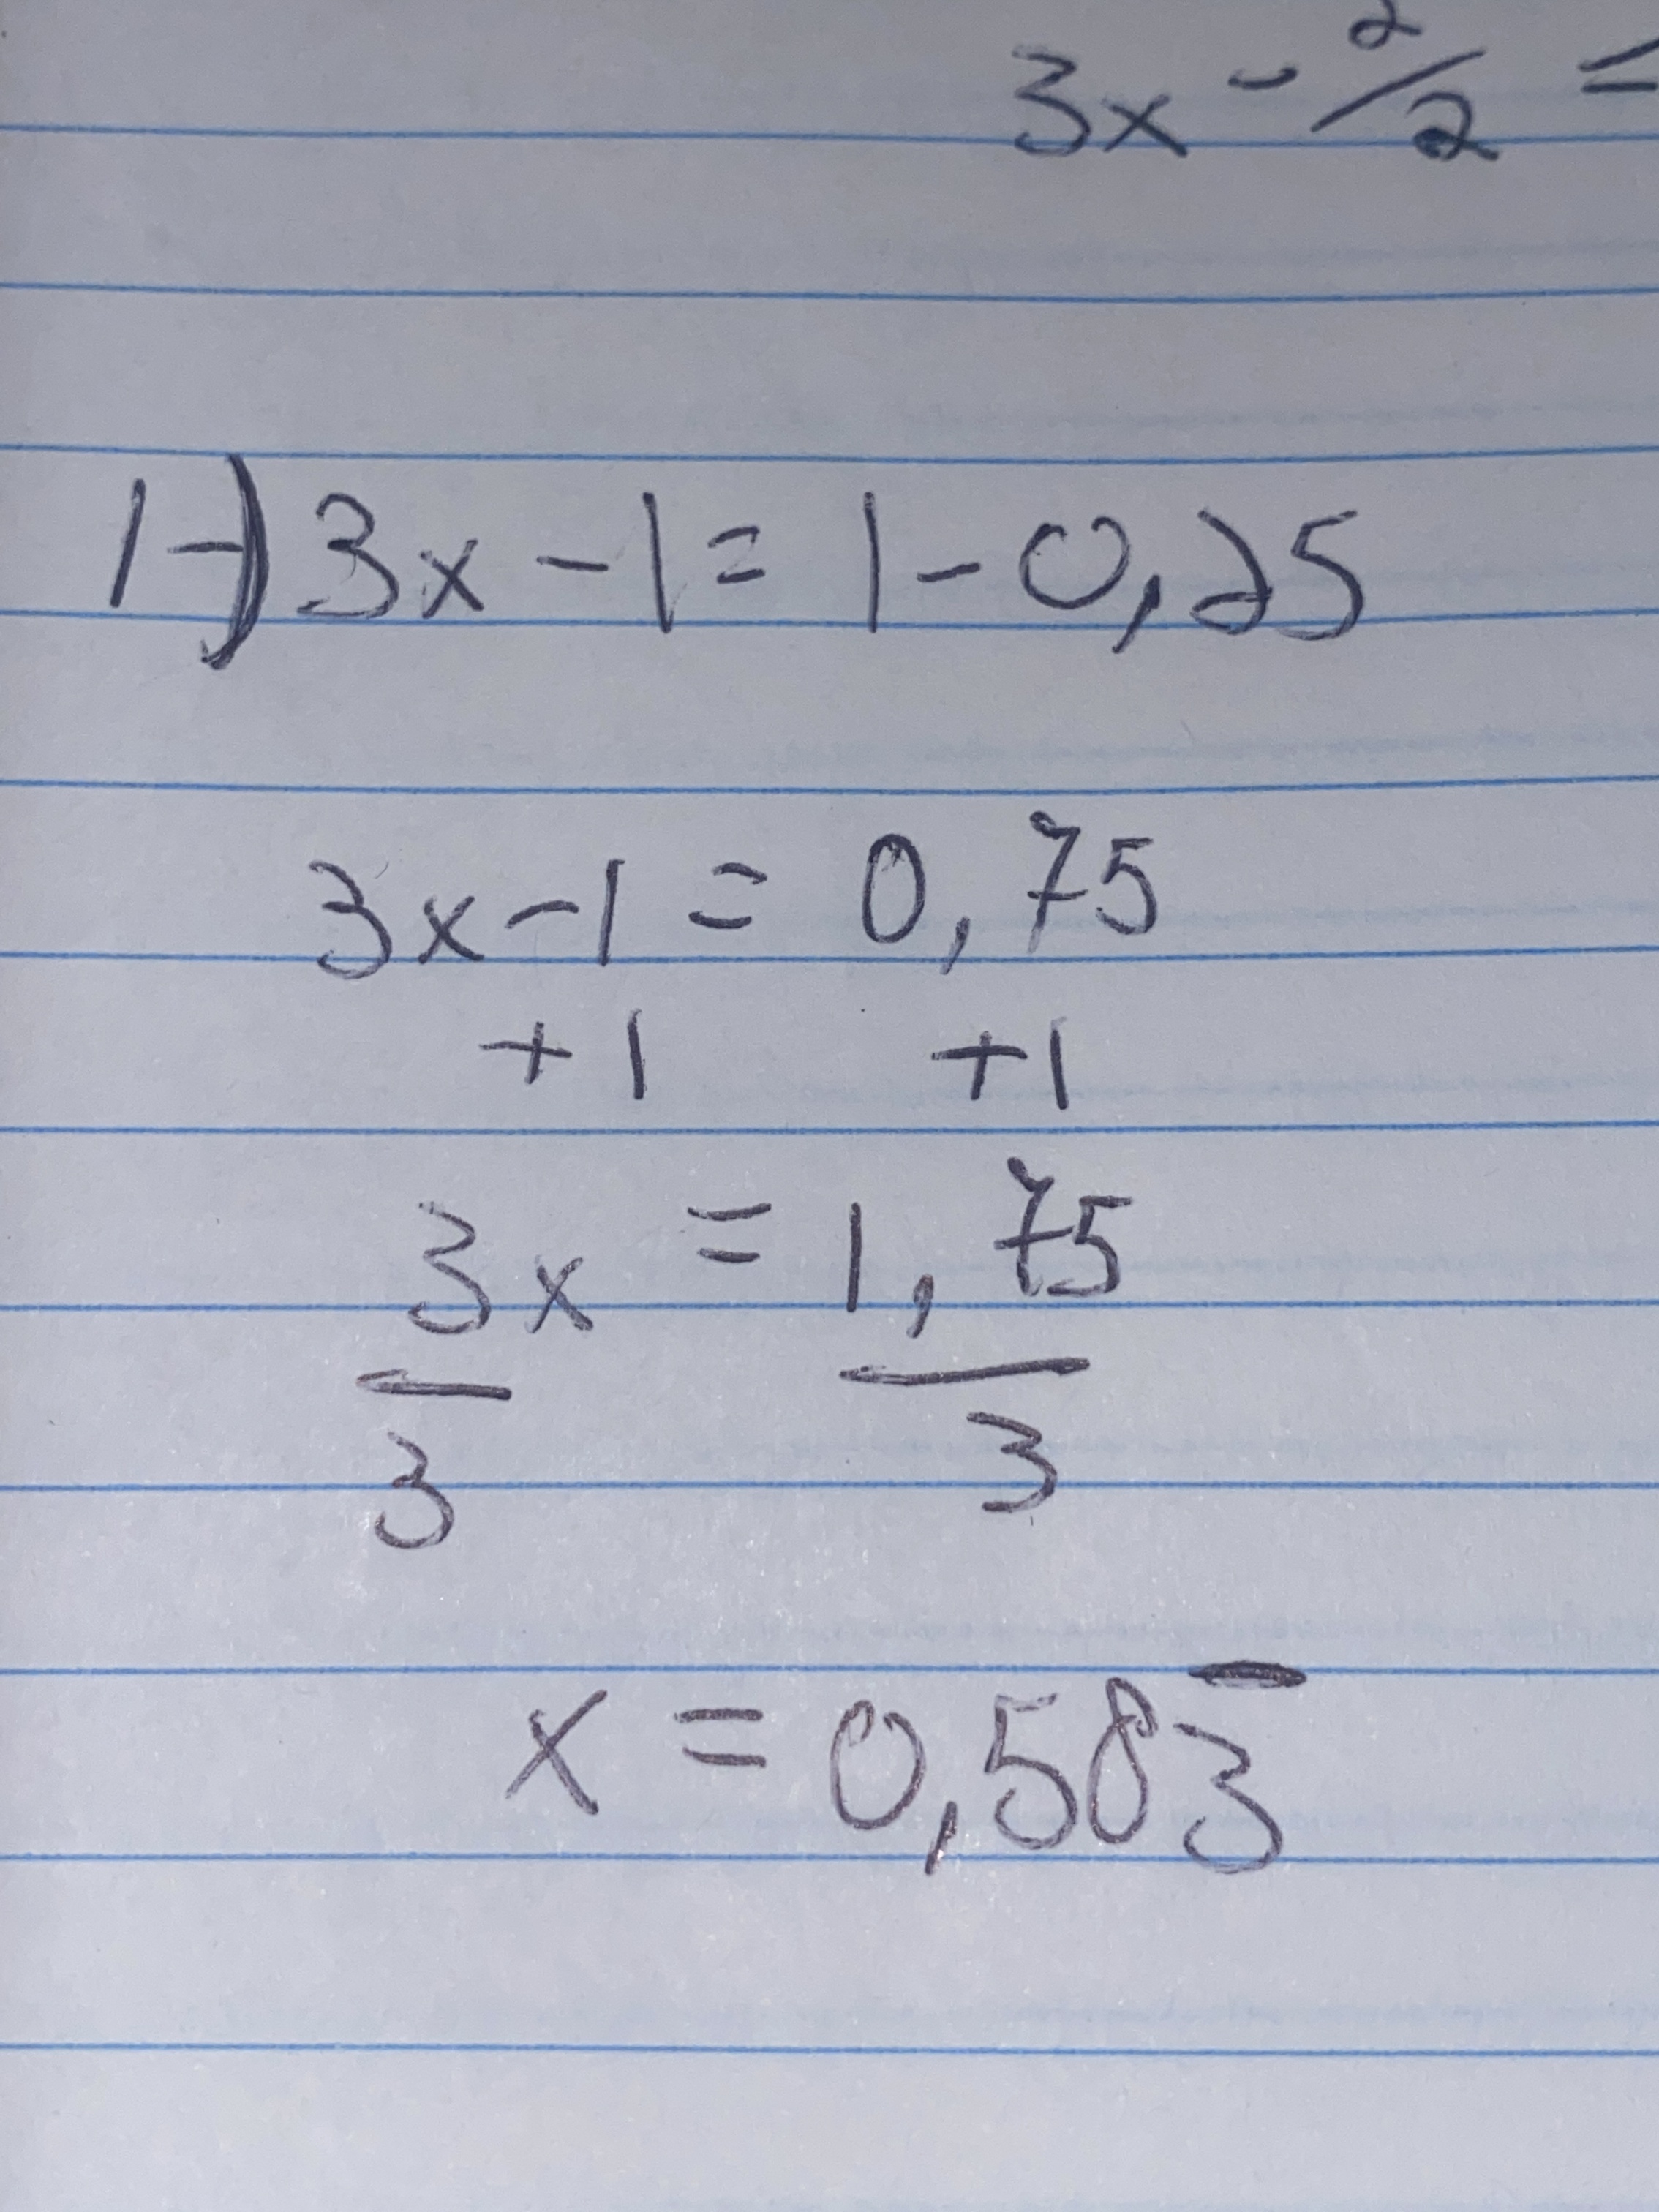 3x - 2/2 =
1-) 3x - 1 = 1 - 0,25
3x - 1 = 0,75
+ 1 + 1
3x = 1,75
3 3
x = 0,583̅